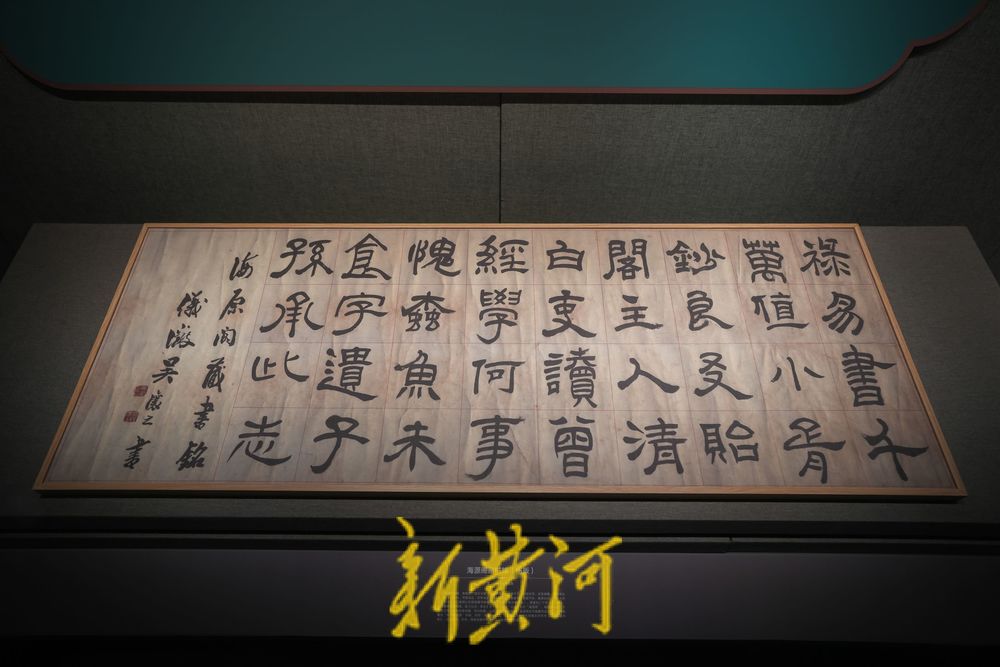 祿易書千
萬值小胥
鈔良友貽
閣主人清
白吏讀曾
經學何事
愧蠹魚未
食字遺子
孫承此志
海原閣藏書銘
儀徵吳讓之書
新黄河